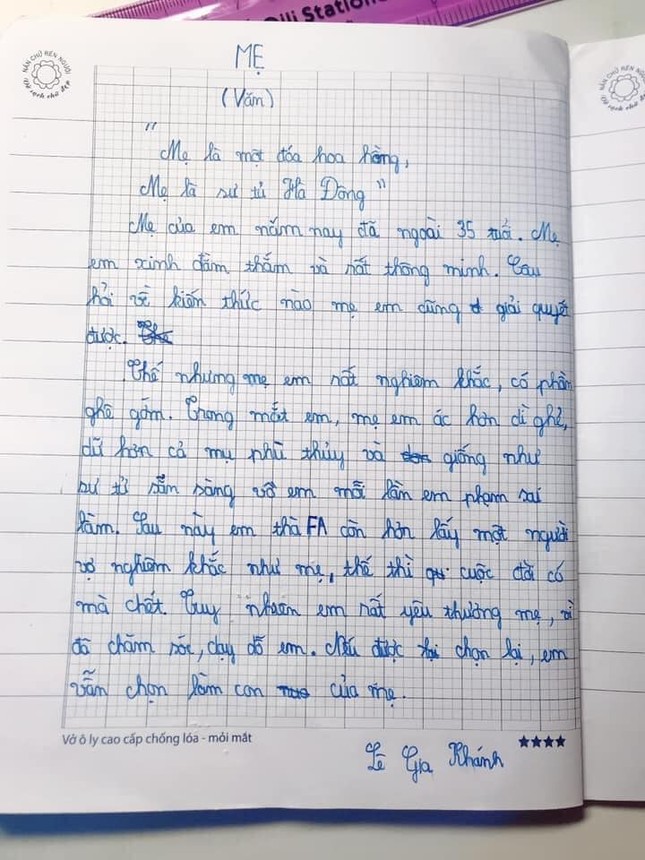 Olli Station
NẮN CHỮ RÈN NGƯỜI
Vở sạch chữ đẹp
NẮN CHỮ RÈN NGƯỜI
Vở sạch chữ đẹp
MẸ
(Văn)
"
Mẹ là một đóa hoa hồng,
Mẹ là sư tử Hà Đông"
Mẹ của em năm nay đã ngoài 35 tuổi. Mẹ
em xinh đằm thắm và rất thông minh. Câu
hỏi về kiến thức nào mẹ em cũng giải quyết
được.
Thế nhưng mẹ em rất nghiêm khắc, có phần
ghê gớm. Trong mắt em, mẹ em ác hơn dì ghẻ,
dữ hơn cả mụ phù thủy và giống như
sư tử sẵn sàng vồ em mỗi lần em phạm sai
lầm. Sau này em thà FA còn hơn lấy một người
vợ nghiêm khắc như mẹ, thế thì cuộc đời có
mà chết. Tuy nhiên em rất yêu thương mẹ, vì
đã chăm sóc, dạy dỗ em. Nếu được chọn lại, em
vẫn chọn làm con của mẹ.
Vở ô ly cao cấp chống lóa - mỏi mắt
★★★★
Lê Gia Khánh